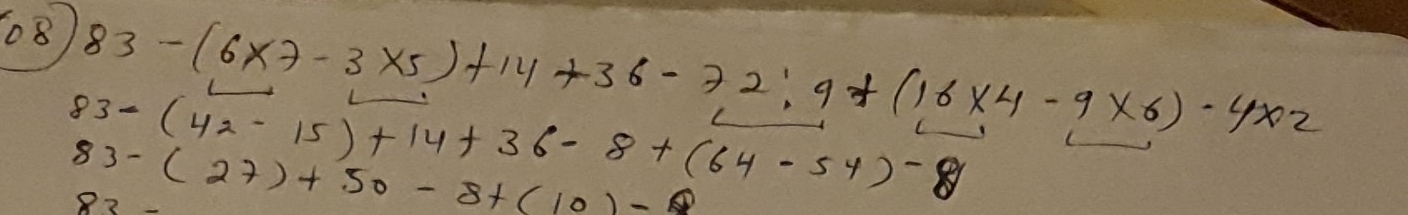 08) 83 - (6x7 - 3x5) + 14 + 36 - 72 : 9 + (16x4 - 9x6) - 4x2
83 - (42 - 15) + 14 + 36 - 8 + (64 - 54) - 8
83 - (27) + 50 - 8 + (10) - 8
83 -